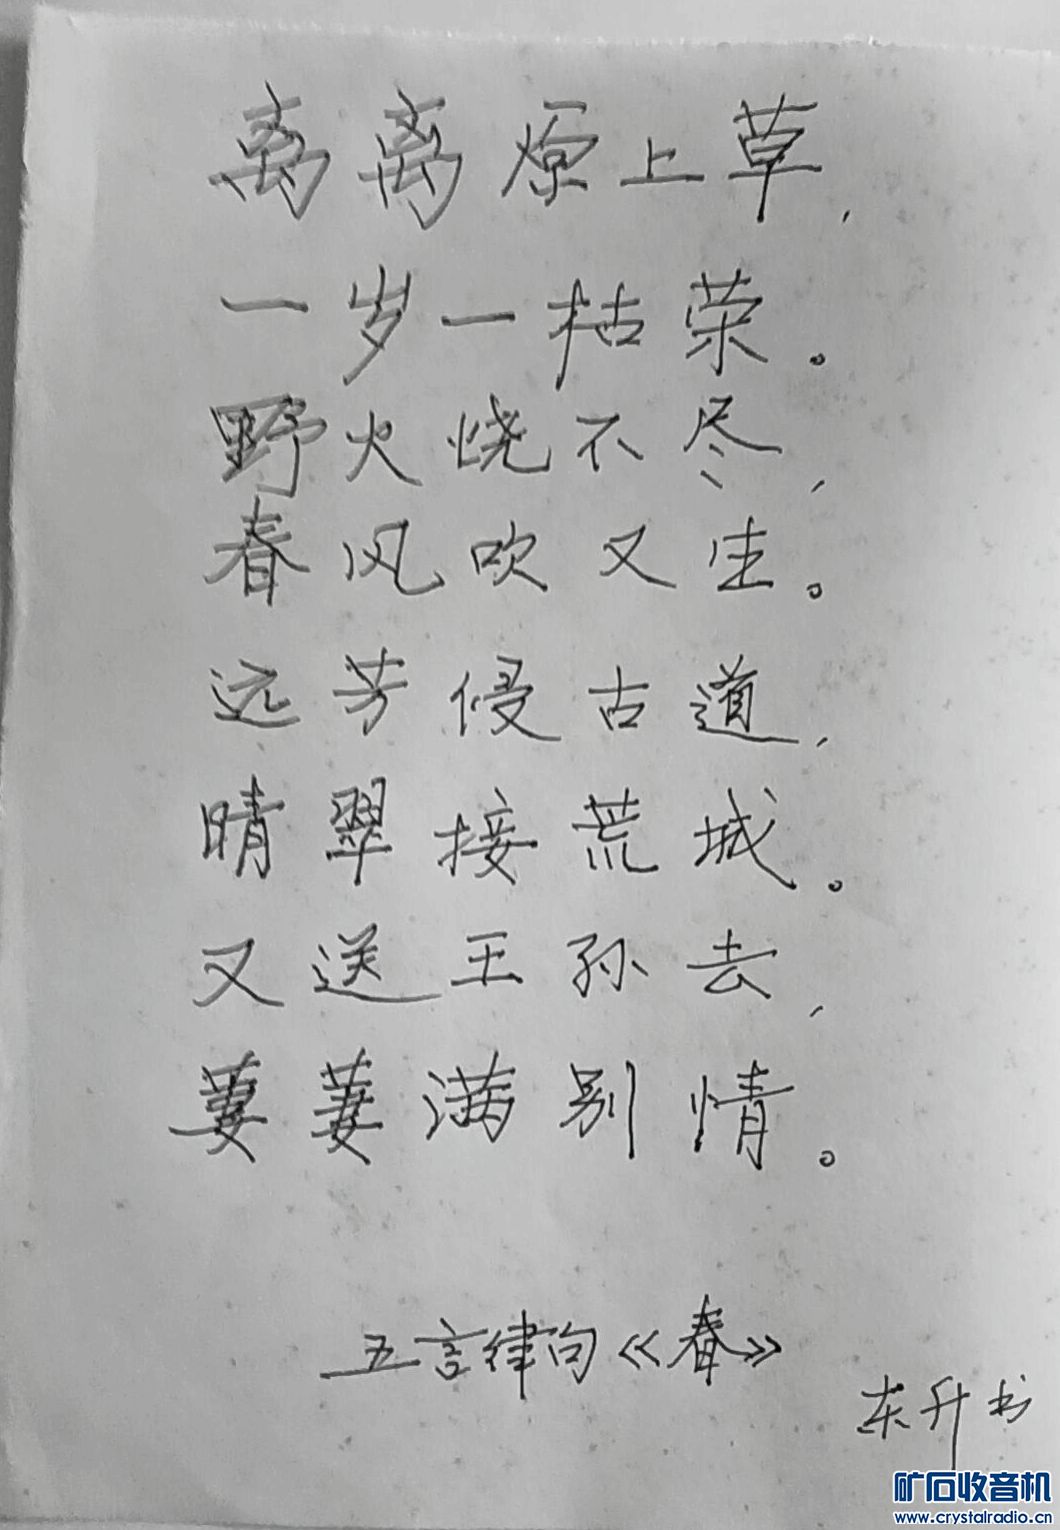 离离燎上草，
一岁一枯荣。
野火烧不尽，
春风吹又生。
远芳侵古道，
晴翠接荒城。
又送王孙去，
萋萋满别情。
五言律句《春》
东升书
矿石收音机
www.crystalradio.cn